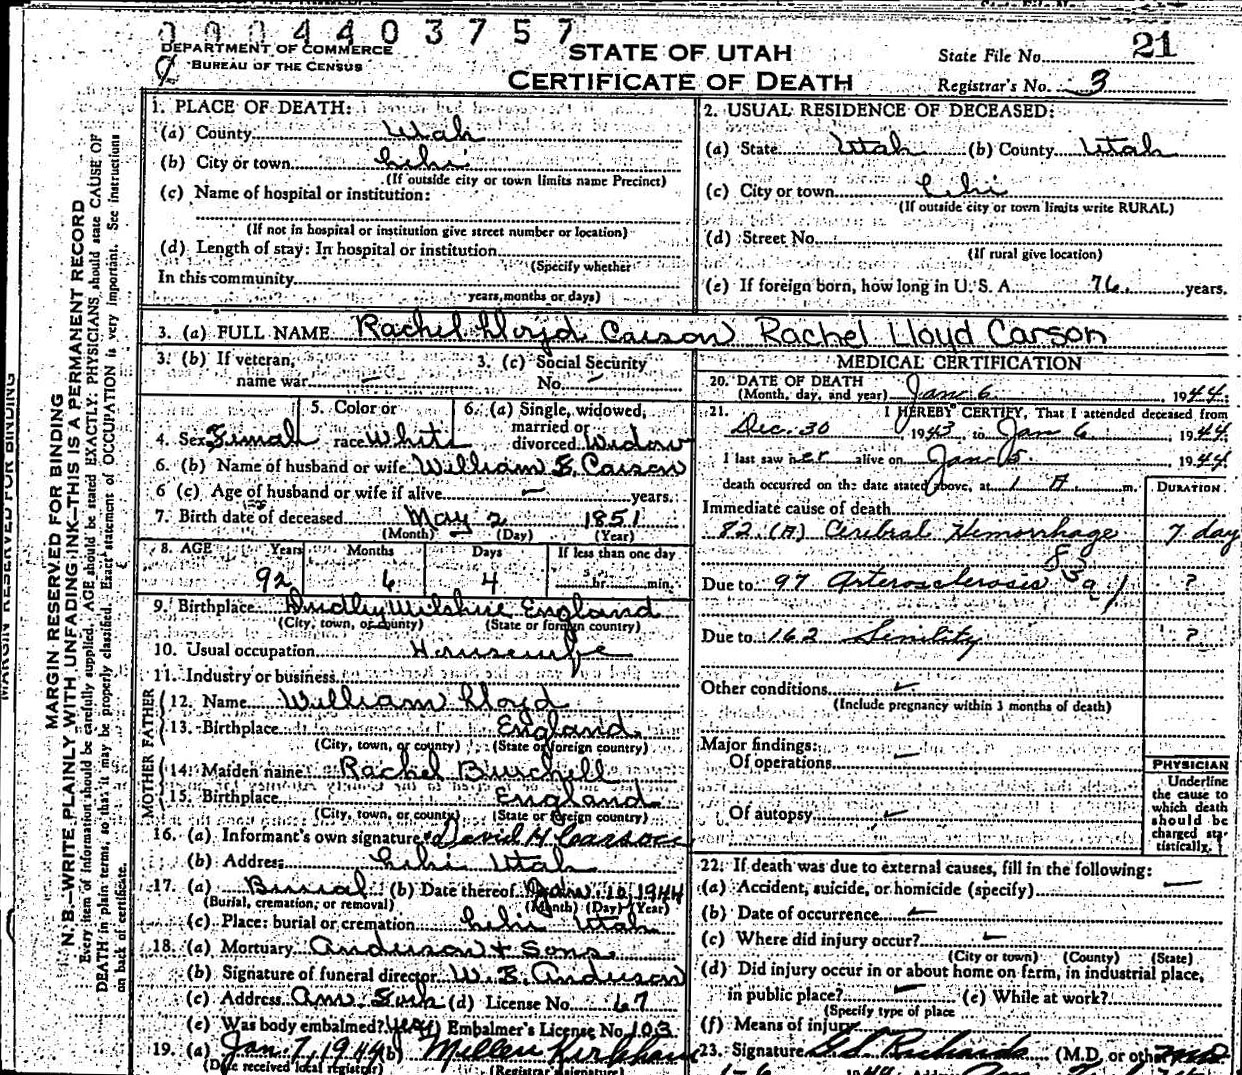 0004403757
DEPARTMENT OF COMMERCE
BUREAU OF THE CENSUS
STATE OF UTAH
CERTIFICATE OF DEATH
State File No. 21
Registrar's No. 3
MARGIN RESERVED FOR BINDING
MARGIN RESERVED FOR BINDING
N. B.—WRITE PLAINLY WITH UNFADING INK—THIS IS A PERMANENT RECORD
Every item of information should be carefully supplied. AGE should be stated EXACTLY. PHYSICIANS should state CAUSE OF
DEATH in plain terms, so that it may be properly classified. Exact statement of OCCUPATION is very important. See instructions
on back of certificate.
1. PLACE OF DEATH:
(a) County Utah
(b) City or town Lehi
(If outside city or town limits name Precinct)
(c) Name of hospital or institution:
(If not in hospital or institution give street number or location)
(d) Length of stay: In hospital or institution
(Specify whether
In this community
years, months or days)
2. USUAL RESIDENCE OF DECEASED:
(a) State Utah (b) County Utah
(c) City or town Lehi
(If outside city or town limits write RURAL)
(d) Street No.
(If rural give location)
(e) If foreign born, how long in U. S. A. 76 years.
3. (a) FULL NAME Rachel Lloyd Carson Rachel Lloyd Carson
3. (b) If veteran, name war —
3. (c) Social Security No. —
4. Sex Female
5. Color or race White
6. (a) Single, widowed, married or divorced Widow
6. (b) Name of husband or wife William F. Carson
6 (c) Age of husband or wife if alive — years.
7. Birth date of deceased May 2 1851
(Month) (Day) (Year)
8. AGE Years Months Days If less than one day
92 6 4 hr. min.
9. Birthplace Dudley Wilshire England
(City, town, or county) (State or foreign country)
10. Usual occupation Housewife
11. Industry or business
FATHER
12. Name William Lloyd
13. Birthplace England
(City, town, or county) (State or foreign country)
MOTHER
14. Maiden name Rachel Burchell
15. Birthplace England
(City, town, or county) (State or foreign country)
16. (a) Informant's own signature David H Carson
(b) Address Lehi Utah
17. (a) Burial (b) Date thereof Jan. 10, 1944
(Burial, cremation, or removal) (Month) (Day) (Year)
(c) Place: burial or cremation Lehi Utah
18. (a) Mortuary Anderson & Sons
(b) Signature of funeral director W. B. Anderson
(c) Address Am. Fork (d) License No. 67
(e) Was body embalmed? yes (f) Embalmer's License No. 103
19. (a) Jan 7, 1944 (b) Millen Kirkham
(Date received local registrar) (Registrar's signature)
MEDICAL CERTIFICATION
20. DATE OF DEATH
(Month, day, and year) Jan 6, 1944
21. I HEREBY CERTIFY, That I attended deceased from
Dec. 30, 1943, to Jan 6, 1944
I last saw her alive on Jan 5, 1944
death occurred on the date stated above, at 1 A. m.
DURATION
Immediate cause of death
82 (A) Cerebral Hemorrhage 7 day
Due to 97 Arterosclerosis ?
Due to 162 Senility ?
Other conditions
(Include pregnancy within 3 months of death)
Major findings:
Of operations
Of autopsy
PHYSICIAN
Underline
the cause to
which death
should be
charged sta-
tistically.
22. If death was due to external causes, fill in the following:
(a) Accident, suicide, or homicide (specify)
(b) Date of occurrence
(c) Where did injury occur?
(City or town) (County) (State)
(d) Did injury occur in or about home on farm, in industrial place,
in public place? (e) While at work?
(Specify type of place
(f) Means of injury
23. Signature G.S. Richards (M.D. or other